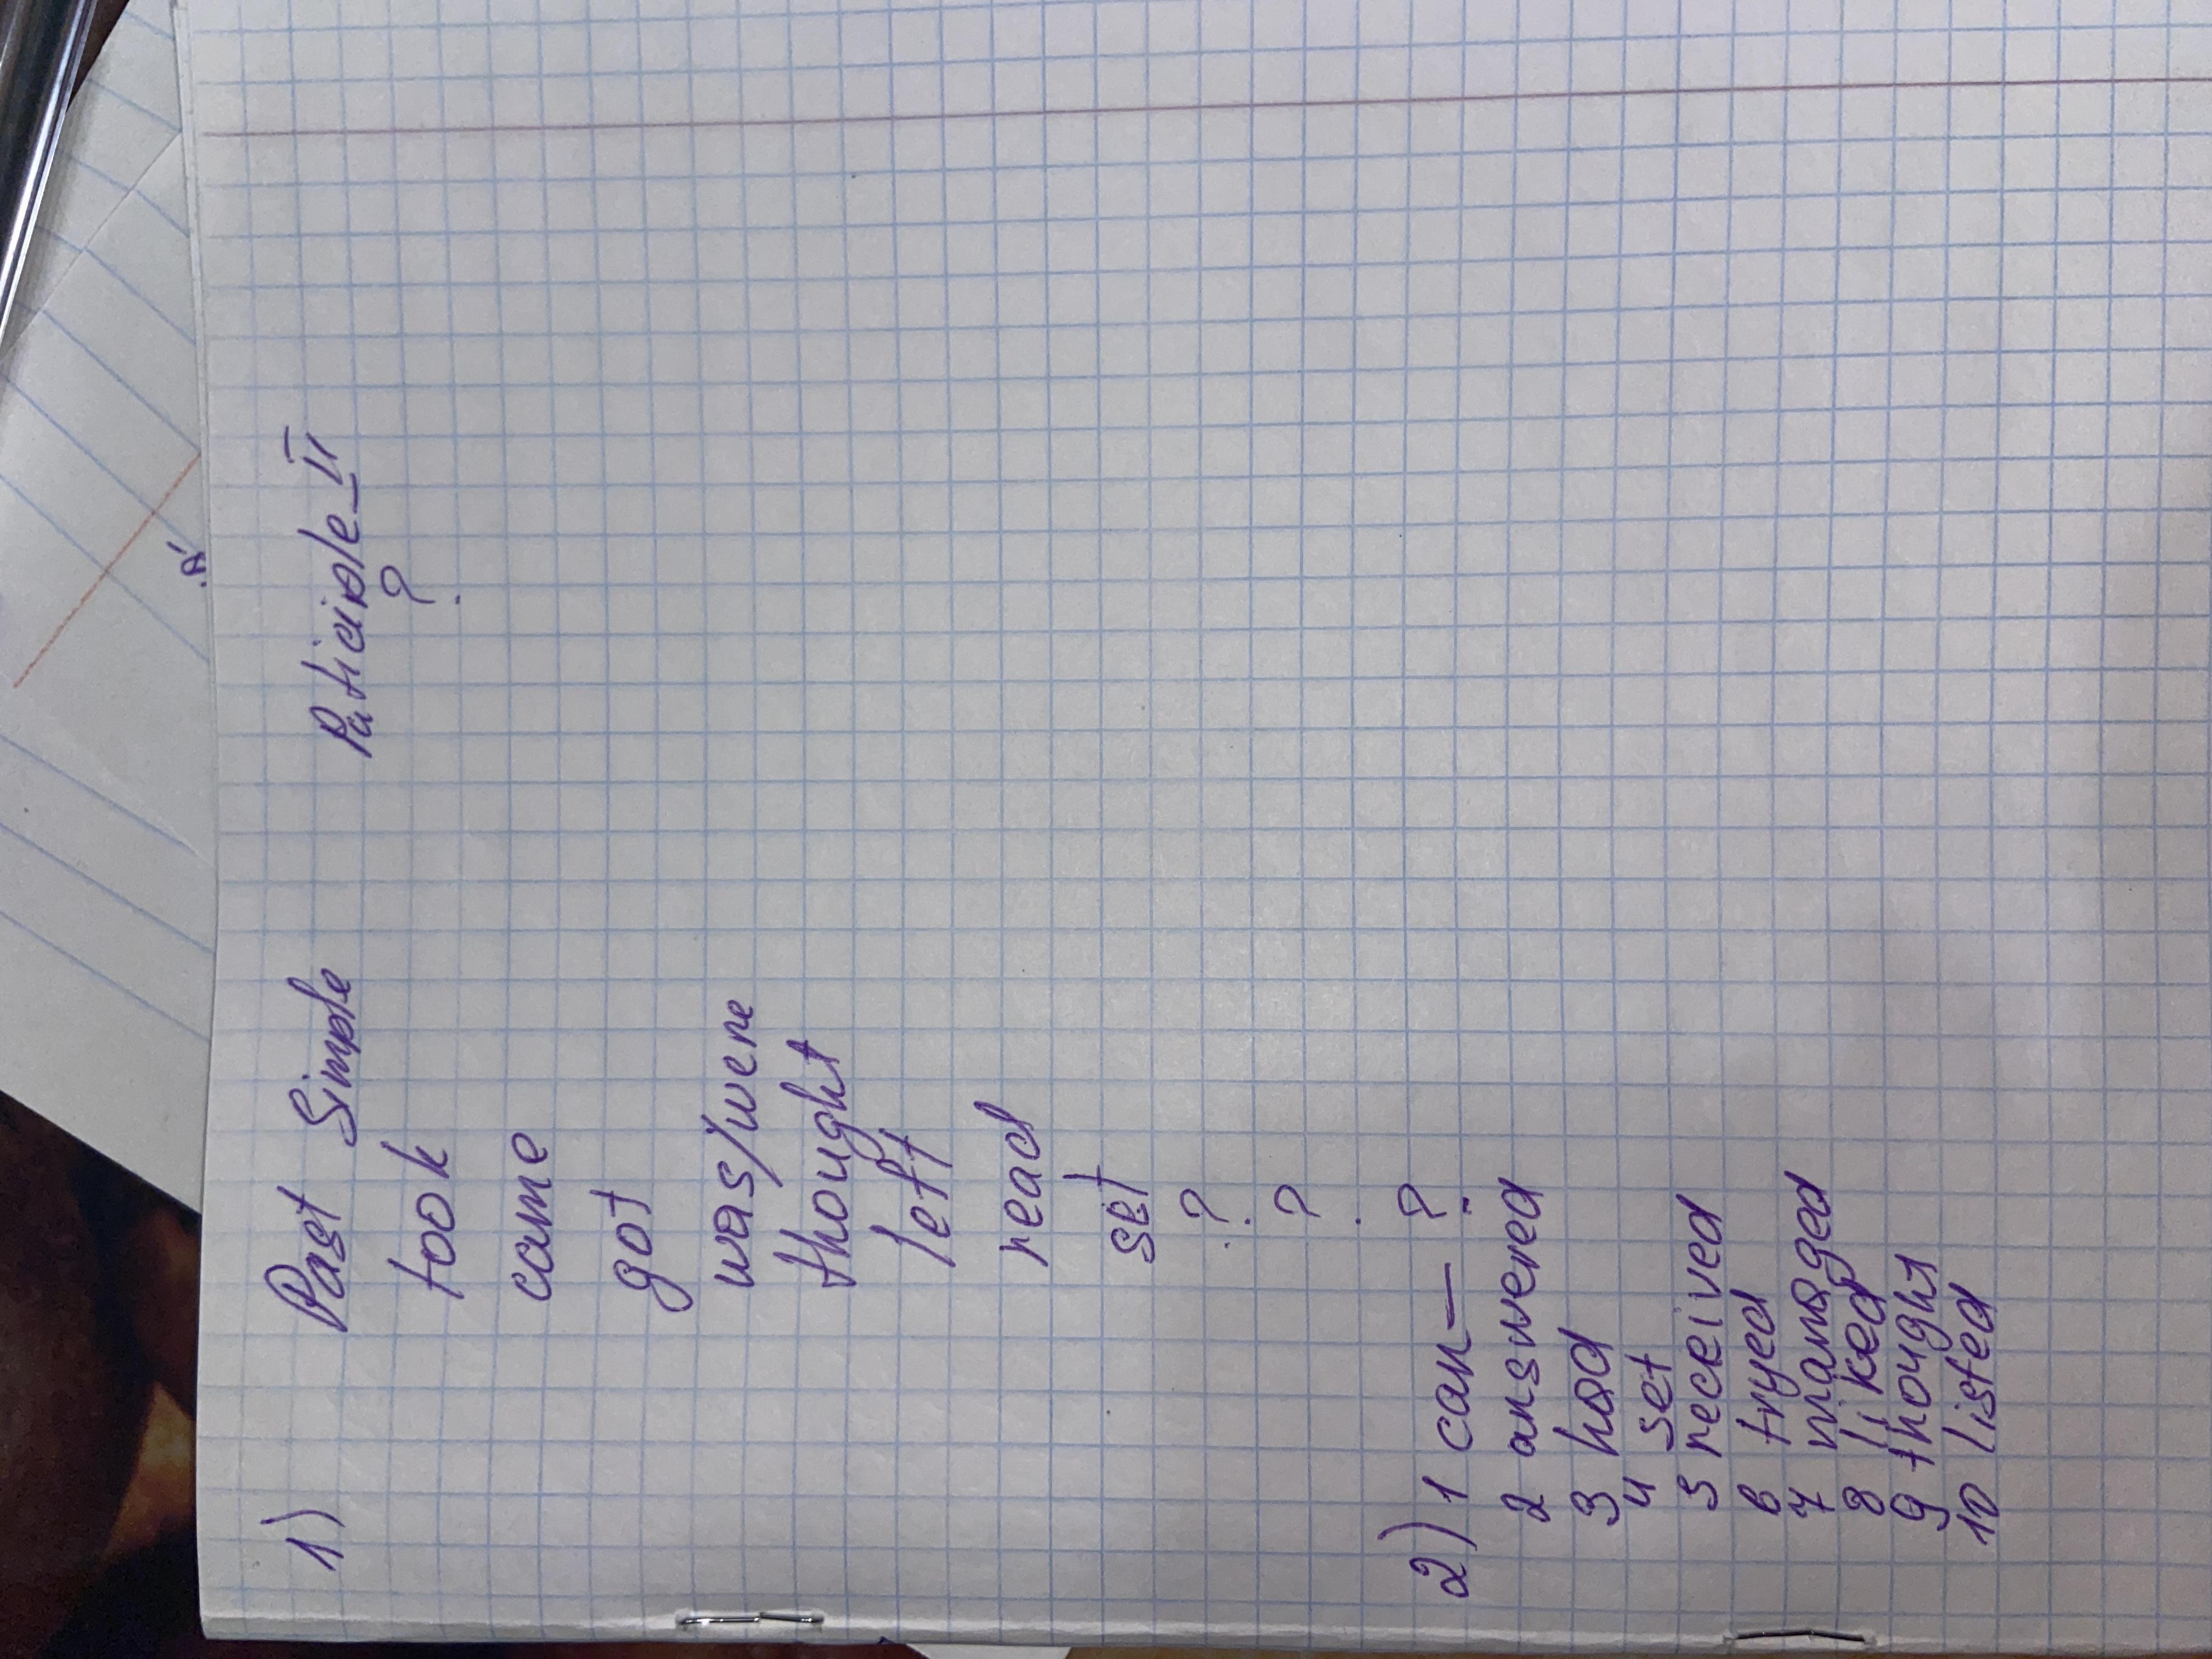 1) Past Simple Paticiple II
took ?
came
got
was/were
thought
left
read
set
?
?
2) 1 can — ?
2 answered
3 had
4 set
5 received
6 tryed
7 managed
8 liked
9 thought
10 listed